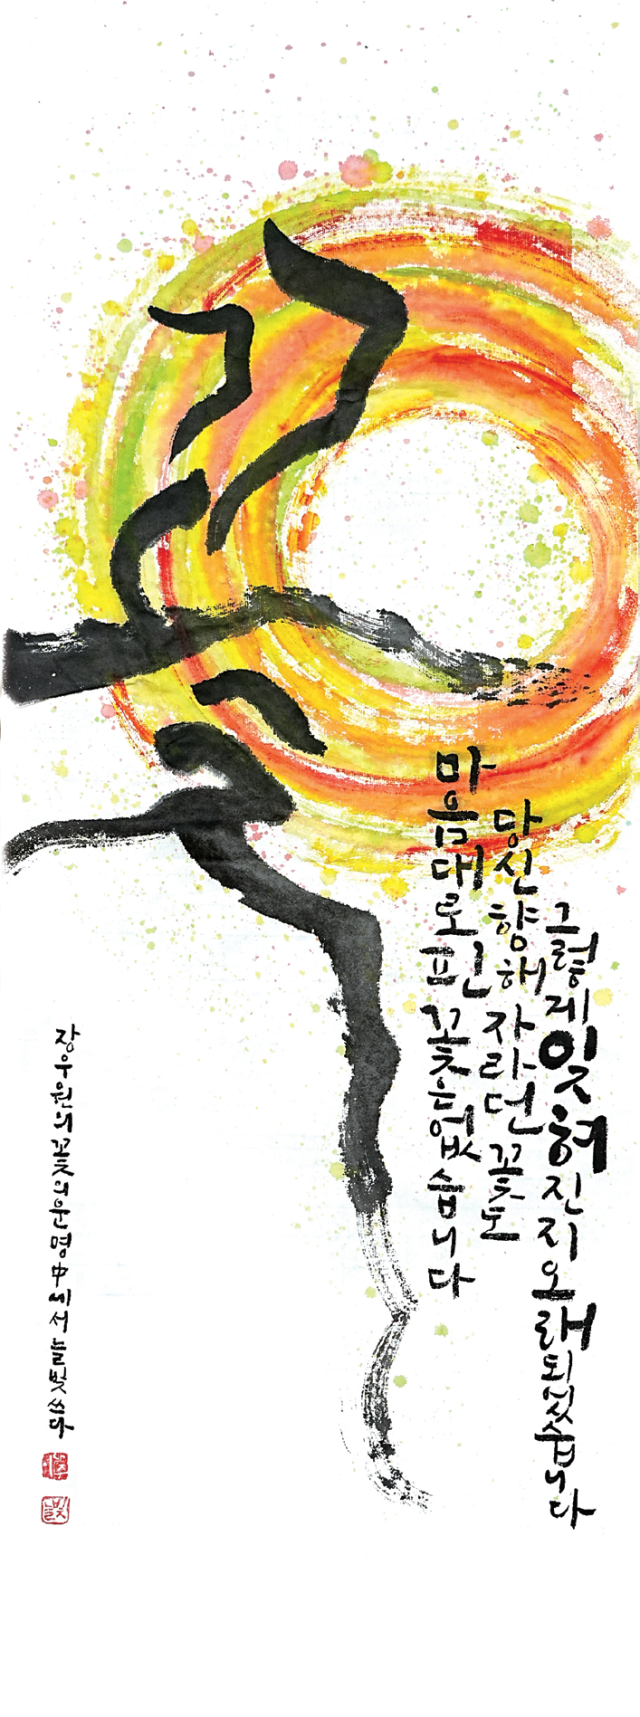 꽃
마음대로 핀 꽃은 없습니다
당신 향해 자라던 꽃도
그렇게 잊혀진지 오래되었습니다
장우원의 꽃의 운명 中에서 늘빛 쓰다
늘빛